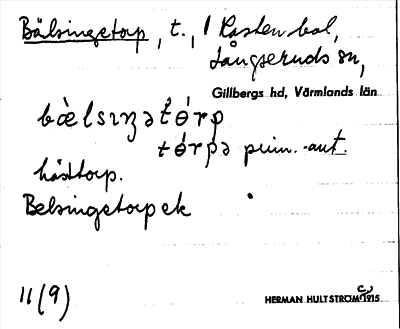 Bälsingetorp, t., / Rosten bol,
Långseruds sn,
Gillbergs hd, Värmlands län
bæ̀lsıŋətǿrp
tǿrpə prim. -aut.
hästtorp.
Belsingetorp ek
11(9)
HERMAN HULTSTRÖM 1915